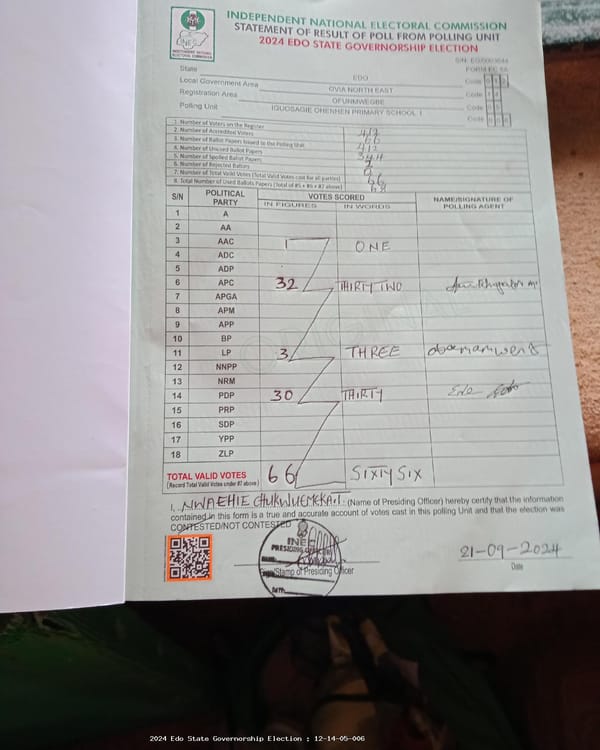 INDEPENDENT NATIONAL ELECTORAL COMMISSION
STATEMENT OF RESULT OF POLL FROM POLLING UNIT
2024 EDO STATE GOVERNORSHIP ELECTION
FORM EC 8A
State EDO Code
Local Government Area OVIA NORTH EAST Code
Registration Area OFUNMWEGBE Code
Polling Unit IGUOSAGIE OHENHEN PRIMARY SCHOOL I Code
1. Number of Voters on the Register 412
2. Number of Accredited Voters
3. Number of Ballot Papers Issued to the Polling Unit 412
4. Number of Unused Ballot Papers 344
5. Number of Spoiled Ballot Papers
6. Number of Rejected Ballots
7. Number of Total Valid Votes (Total Valid Votes cast for all parties) 66
8. Total Number of Used Ballots Papers (Total of #5 + #6 + #7 above) 68
S/N POLITICAL PARTY VOTES SCORED NAME/SIGNATURE OF POLLING AGENT
IN FIGURES IN WORDS
1 A
2 AA
3 AAC 1 ONE
4 ADC
5 ADP
6 APC 32 THIRTY TWO
7 APGA
8 APM
9 APP
10 BP
11 LP 3 THREE
12 NNPP
13 NRM
14 PDP 30 THIRTY
15 PRP
16 SDP
17 YPP
18 ZLP
TOTAL VALID VOTES 66 SIXTY SIX
(Record Total Valid Votes under #7 above)
I, NWAEHIE CHUKWUEMEKA.I. (Name of Presiding Officer) hereby certify that the information
contained in this form is a true and accurate account of votes cast in this polling Unit and that the election was
CONTESTED/NOT CONTESTED
INEC
PRESIDING OFFICER
Sign/Stamp of Presiding Officer
DATE
21-09-2024
Date
2024 Edo State Governorship Election : 12-14-05-006